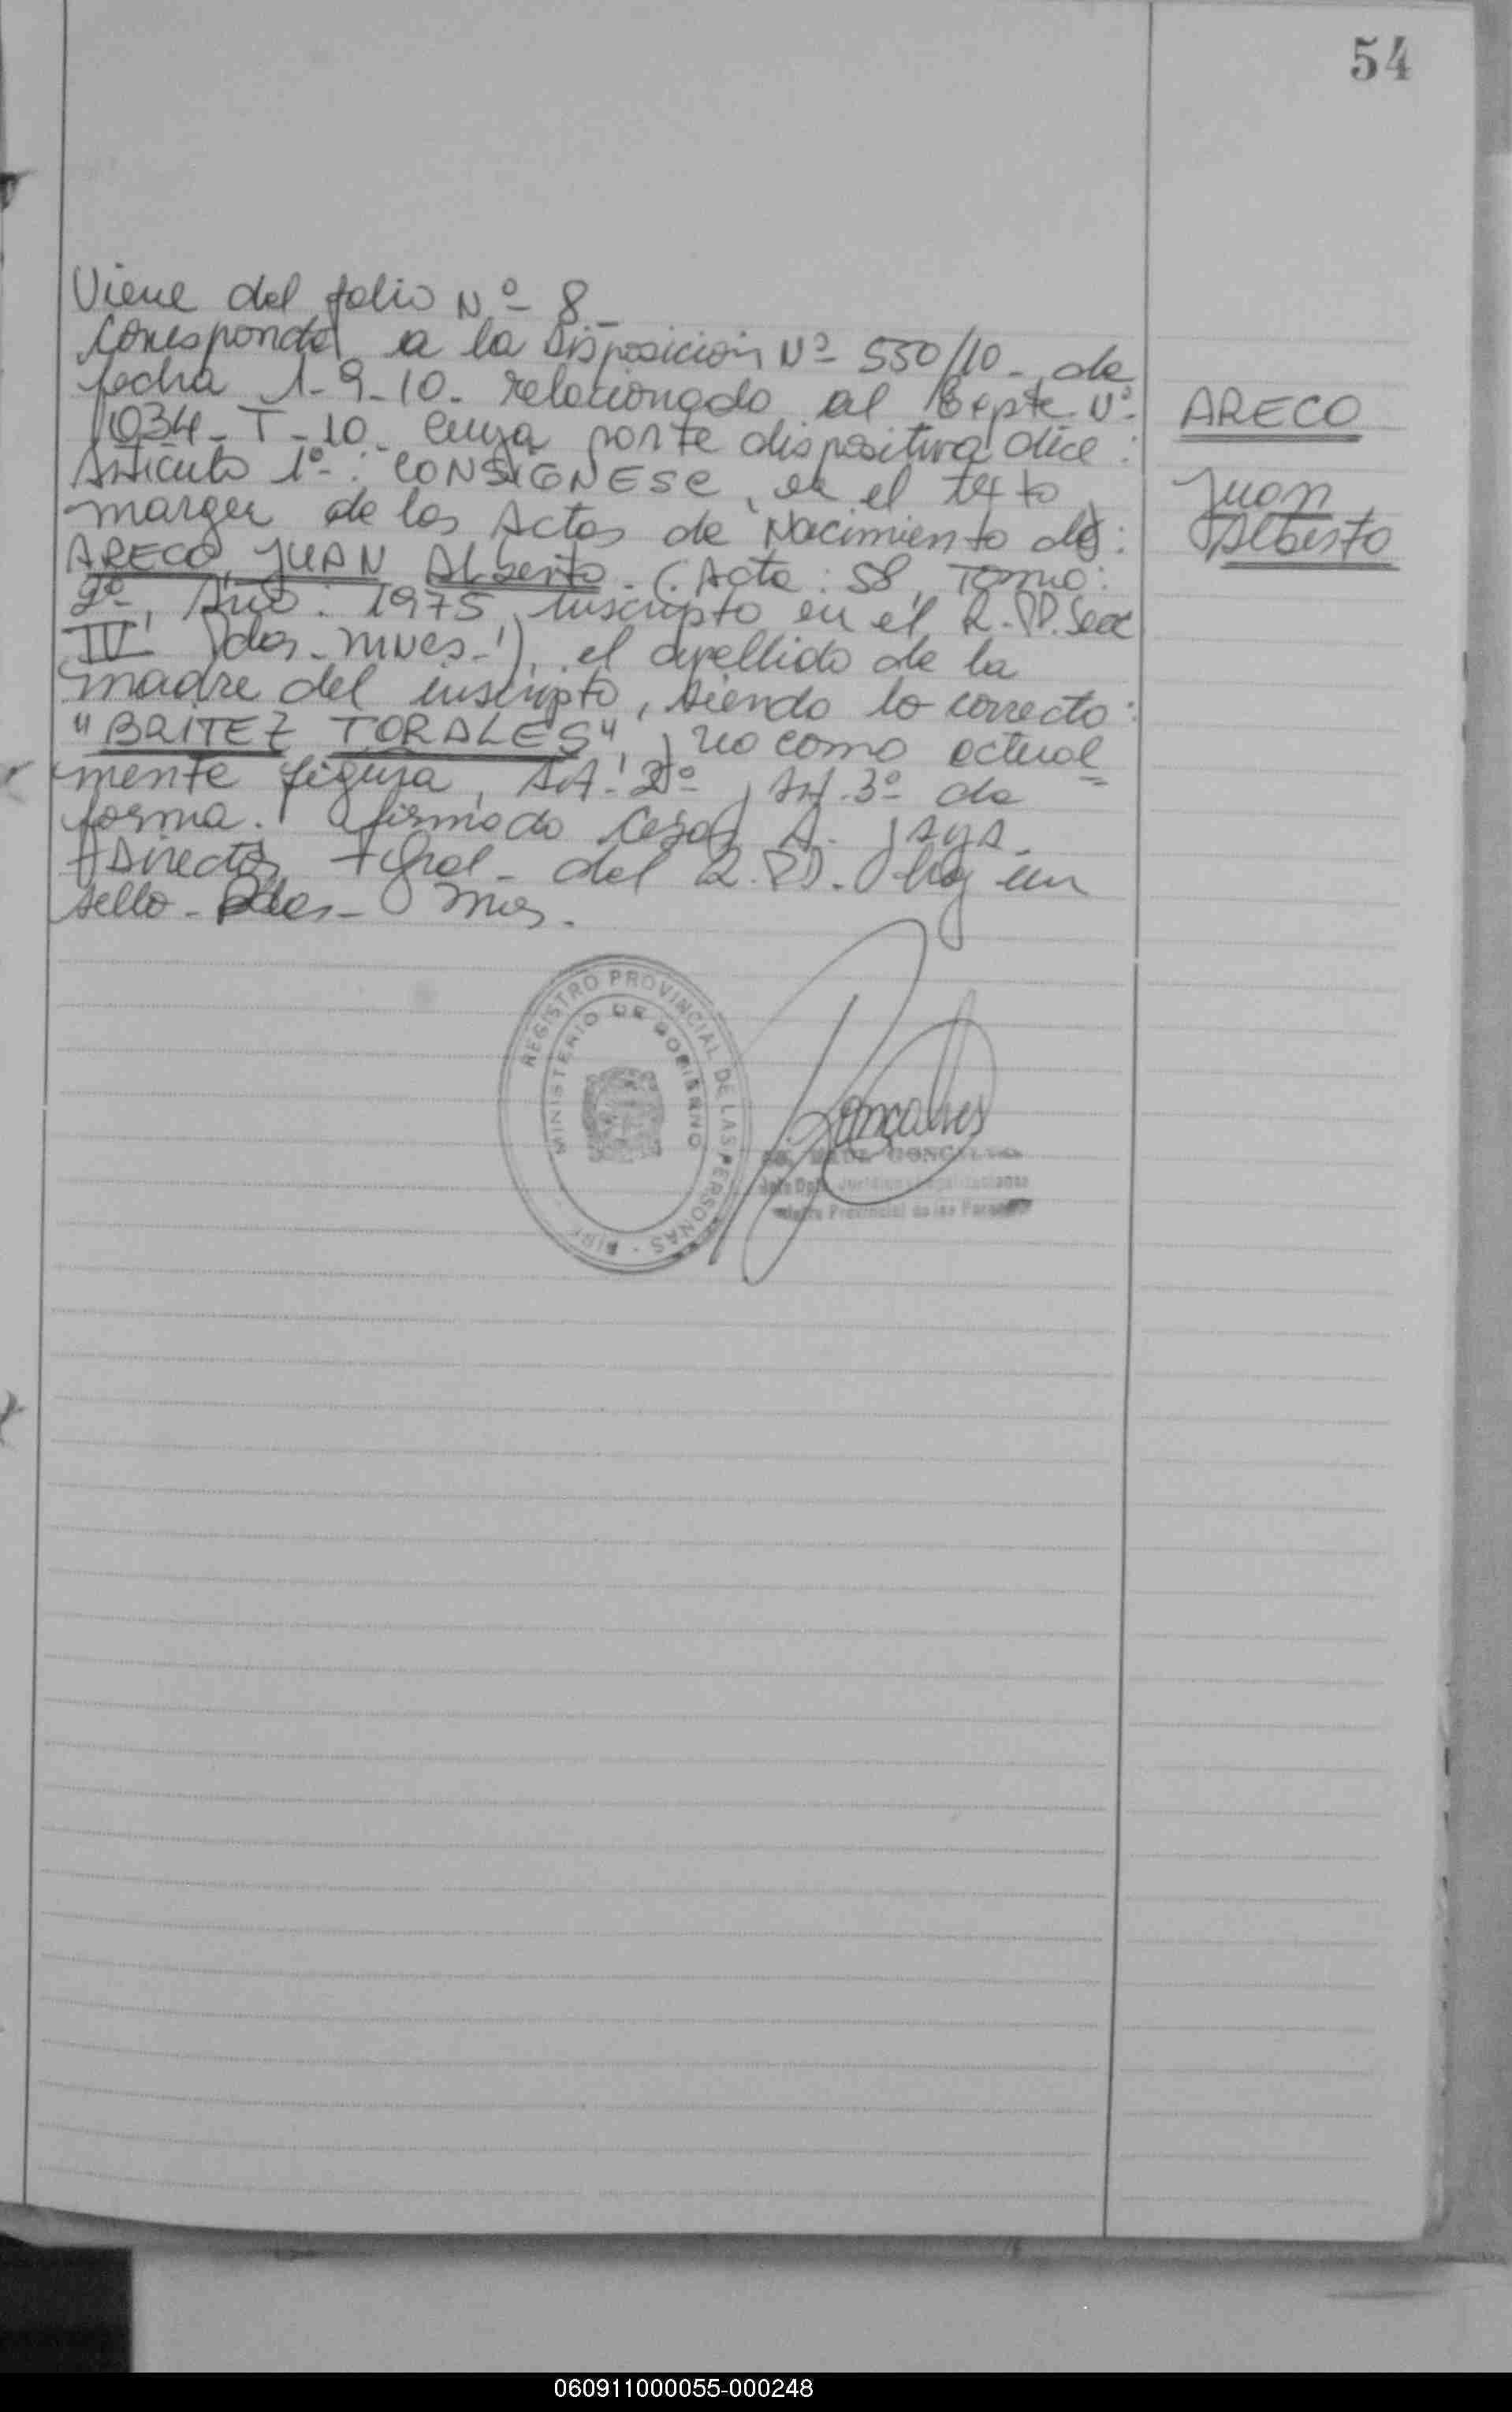 54
Viene del folio Nº 8_
Corresponde a la Disposición Nº 550/10 _ de
fecha 1-9-10. relacionado al Expte. Nº
1034_T_10_ cuya parte dispositiva dice:
Articulo 1º: CONSIGNESE, en el texto y
margen de las Actas de Nacimiento de:
ARECO, JUAN Alberto_ (Acta: 58, Tomo:
2º, Año: 1975, inscripto en el R.PP. Secc
IV Pdas_mnes_), el apellido de la
madre del inscripto, siendo lo correcto:
"BRITEZ TORALES", y no como actual
mente figura, Art. 2º y Art. 3º de
forma. firmado Cesar A.
Director Gral_ del R.PP. hay un
sello_ Pdas_ mnes.
ARECO
Juan
Alberto
REGISTRO PROVINCIAL DE LAS PERSONAS
MINISTERIO DE GOBIERNO
Goncalves
GONCALVES
Provincial de las Personas
060911000055-000248